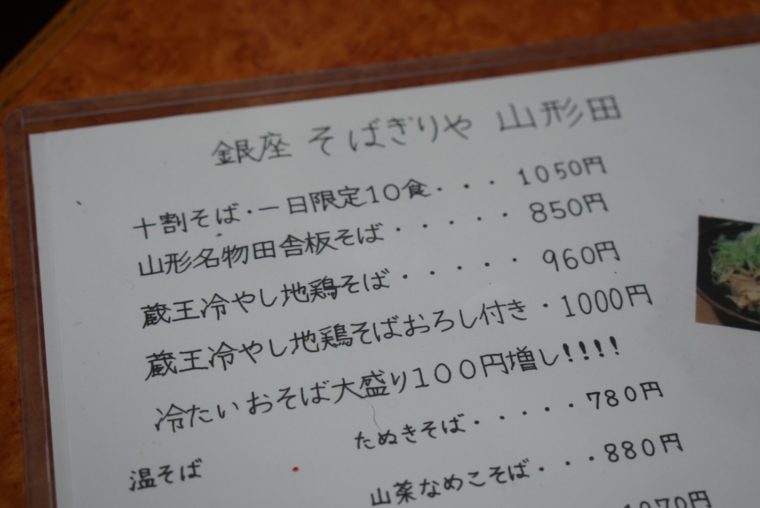 銀座 そばぎりや 山形田
十割そば・一日限定10食・・・ 1050円
山形名物田舎板そば・・・・・ 850円
蔵王冷やし地鶏そば・・・・・ 960円
蔵王冷やし地鶏そばおろし付き・1000円
冷たいおそば大盛り100円増し!!!!
温そば たぬきそば・・・・・780円
山菜なめこそば・・・880円
1070円